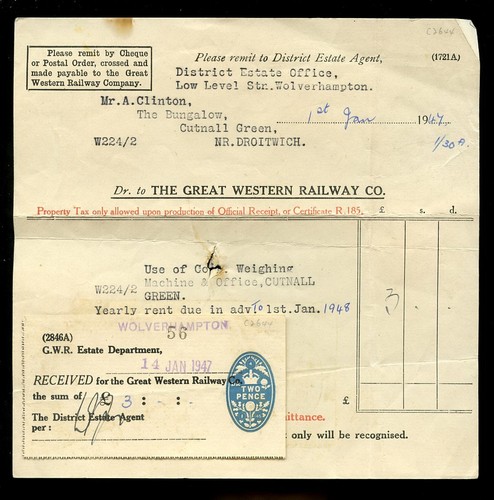 Please remit by Cheque
or Postal Order, crossed and
made payable to the Great
Western Railway Company.
Please remit to District Estate Agent,
(1721A)
District Estate Office,
Low Level Stn. Wolverhampton.
Mr.A.Clinton,
The Bungalow,
Cutnall Green,
W224/2 NR.DROITWICH.
1st Jan 1947
1/30A.
Dr. to THE GREAT WESTERN RAILWAY CO.
Property Tax only allowed upon production of Official Receipt, or Certificate R.185. £ s. d.
Use of Weighing
Machine & Office, CUTNALL
W224/2 GREEN.
Yearly rent due in adv To 1st. Jan. 1948
3 . .
£
WOLVERHAMPTON
56
(2846A)
G.W.R. Estate Department,
14 JAN 1947
RECEIVED for the Great Western Railway Co.
the sum of £ 3 : - : -
The District Estate Agent
per :
TWO
PENCE
mittance.
only will be recognised.